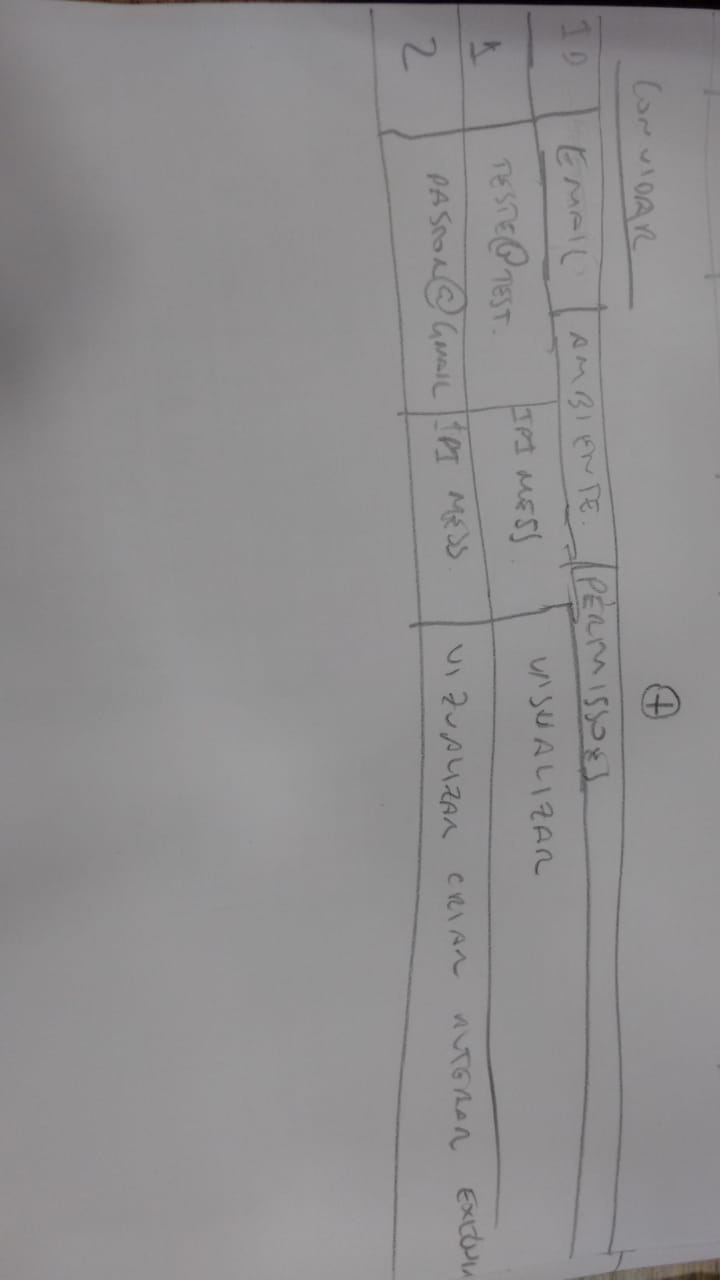 CONVIDAR
+
ID EMAIL AMBIENTE. PERMISSOES
1 TESTE@TEST. IPI MESS. VISUALIZAR
2 PASTOR@GMAIL IPI MESS. VIZUALIZAR CRIAR